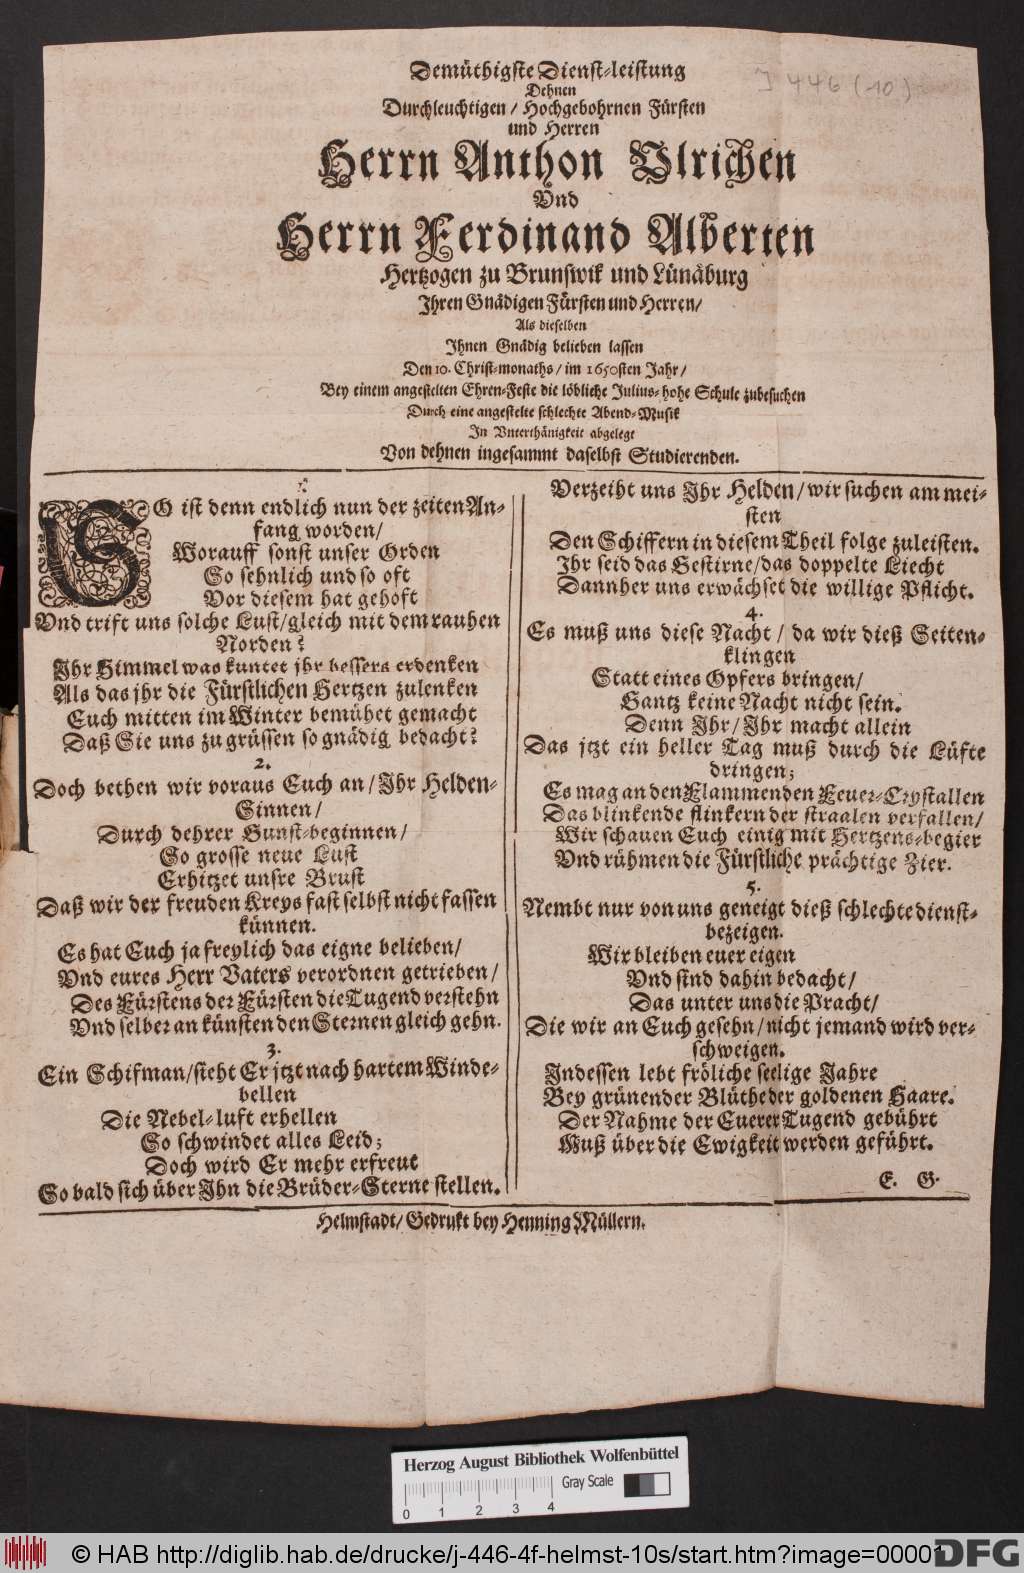 Demüthigste Dienst-leistung
J 446 (10)
Dehnen
Durchleuchtigen / Hochgebohrnen Fürsten
und Herren
Herrn Anthon Ulrichen
Vnd
Herrn Ferdinand Alberten
Hertzogen zu Brunswik und Lünäburg
Ihren Gnädigen Fürsten und Herren/
Als dieselben
Ihnen Gnädig belieben lassen
Den 10. Christ-monaths / im 1650sten Jahr/
Bey einem angestelten Ehren-Feste die löbliche Julius-hohe Schule zubesuchen
Durch eine angestelte schlechte Abend-Musik
In Vnterthänigkeit abgelegt
Von dehnen ingesammt daselbst Studierenden.
1.
SO ist denn endlich nun der zeiten An-
fang worden/
Worauff sonst unser Orden
So sehnlich und so oft
Vor diesem hat gehoft
Vnd trift uns solche Lust/gleich mit dem rauhen
Norden?
Ihr Himmel was kuntet jhr bessers erdenken
Als das jhr die Fürstlichen Hertzen zulenken
Euch mitten im Winter bemühet gemacht
Daß Sie uns zu grüssen so gnädig bedacht?
2.
Doch bethen wir voraus Euch an / Ihr Helden-
Sinnen/
Durch dehrer Gunst-beginnen/
So grosse neue Lust
Erhitzet unsre Brust
Daß wir der freuden Kreys fast selbst nicht fassen
künnen.
Es hat Euch ja freylich das eigne belieben/
Vnd eures Herr Vaters verordnen getrieben/
Des Fürstens der Fürsten die Tugend verstehn
Vnd selber an künsten den Sternen gleich gehn.
3.
Ein Schifman/sieht Er jtzt nach hartem Winde-
bellen
Die Nebel-luft erhellen
So schwindet alles Leid;
Doch wird Er mehr erfreut
So bald sich über Ihn die Brüder-Sterne stellen.
Verzeiht uns Ihr Helden/wir suchen am mei-
sten
Den Schiffern in diesem Theil folge zuleisten.
Ihr seid das Gestirne/das doppelte Liecht
Dannher uns erwächset die willige Pflicht.
4.
Es muß uns diese Nacht / da wir dieß Seiten-
klingen
Statt eines Opfers bringen/
Gantz keine Nacht nicht sein.
Denn Ihr/Ihr macht allein
Das jtzt ein heller Tag muß durch die Lüfte
dringen;
Es mag an den Flammenden Feuer-Crystallen
Das blinkende flinkern der straalen verfallen/
Wir schauen Euch einig mit Hertzens-begier
Vnd rühmen die Fürstliche prächtige Zier.
5.
Nembt nur von uns geneigt dieß schlechte dienst-
bezeigen.
Wir bleiben euer eigen
Vnd sind dahin bedacht/
Das unter uns die Pracht/
Die wir an Euch gesehn/nicht jemand wird ver-
schweigen.
Indessen lebt fröliche seelige Jahre
Bey grünender Blüthe der goldenen Haare.
Der Nahme der Euerer Tugend gebührt
Muß über die Ewigkeit werden geführt.
E. G.
Helmstadt/Gedrukt bey Henning Müllern.
Herzog August Bibliothek Wolfenbüttel
Gray Scale
0 1 2 3 4
© HAB http://diglib.hab.de/drucke/j-446-4f-helmst-10s/start.htm?image=00001
DFG